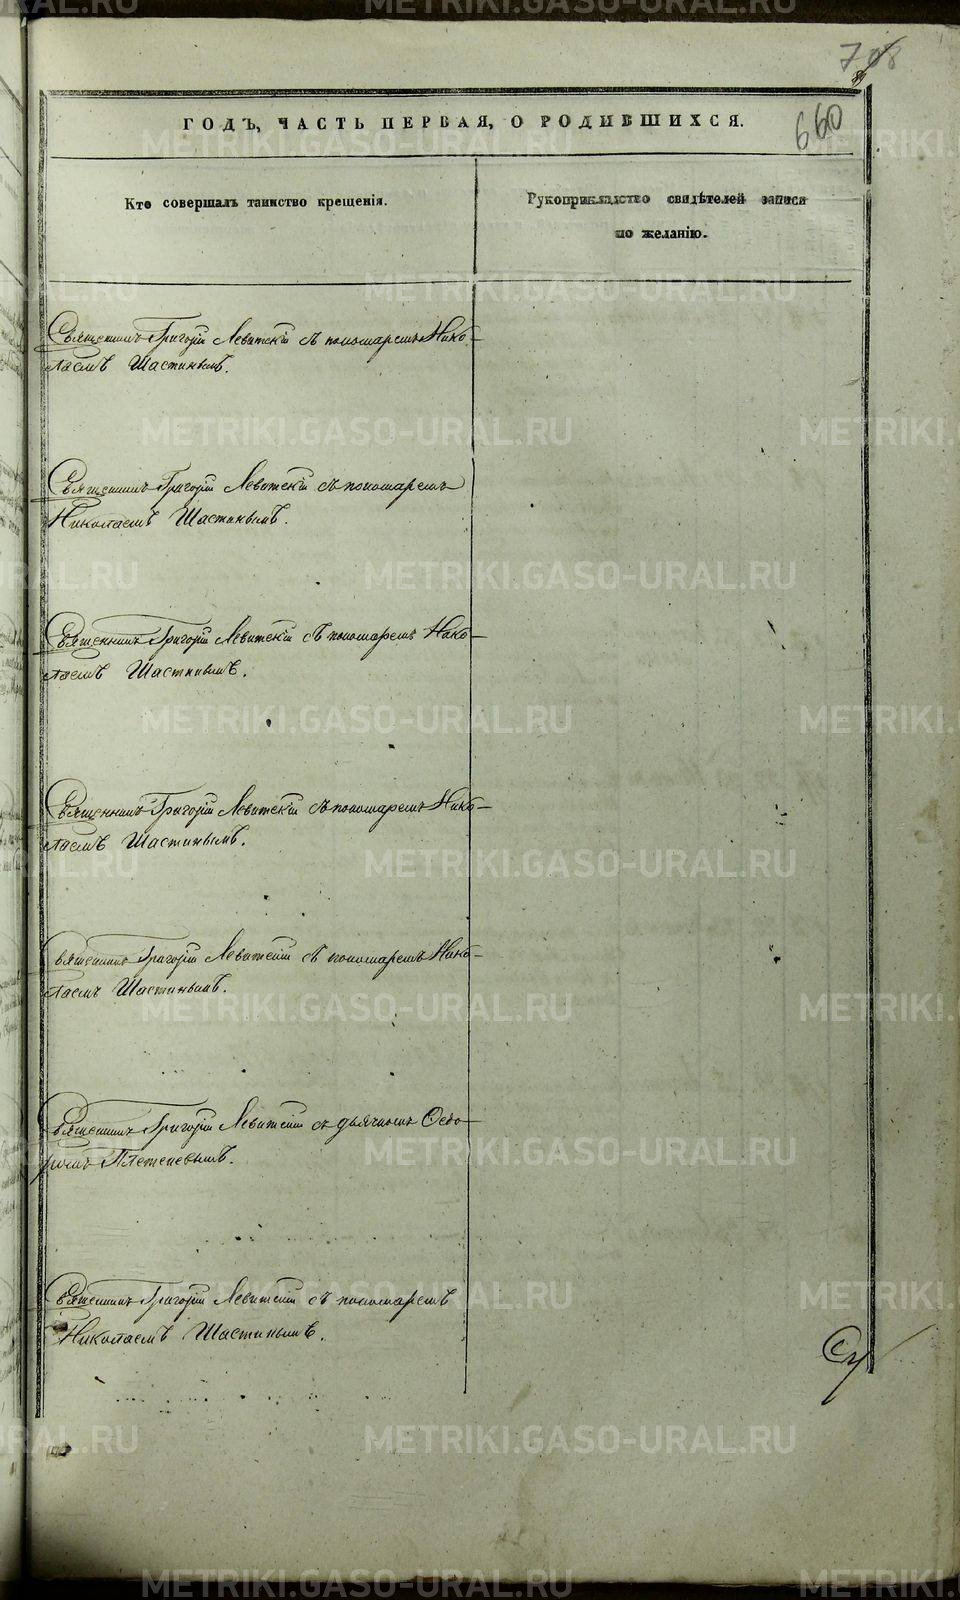 708
660
ГОДЪ, ЧАСТЬ ПЕРВАЯ, О РОДИВШИХСЯ.
Кто совершалъ таинство крещенія.
Рукоприкладство свидѣтелей записи
по желанію.
Священникъ Григорій Левитскій съ пономаремъ Нико-
лаемъ Шастинымъ.
Священникъ Григорій Левитскій съ пономаремъ
Николаемъ Шастинымъ.
Священникъ Григорій Левитскій съ пономаремъ Нико-
лаемъ Шастинымъ.
Священникъ Григорій Левитскій съ пономаремъ Нико-
лаемъ Шастинымъ.
Священникъ Григорій Левитскій съ пономаремъ Нико-
лаемъ Шастинымъ.
Священникъ Григорій Левитскій съ дьячкомъ Ѳедо-
ромъ Плетеневымъ.
Священникъ Григорій Левитскій съ пономаремъ
Николаемъ Шастинымъ.
METRIKI.GASO-URAL.RU